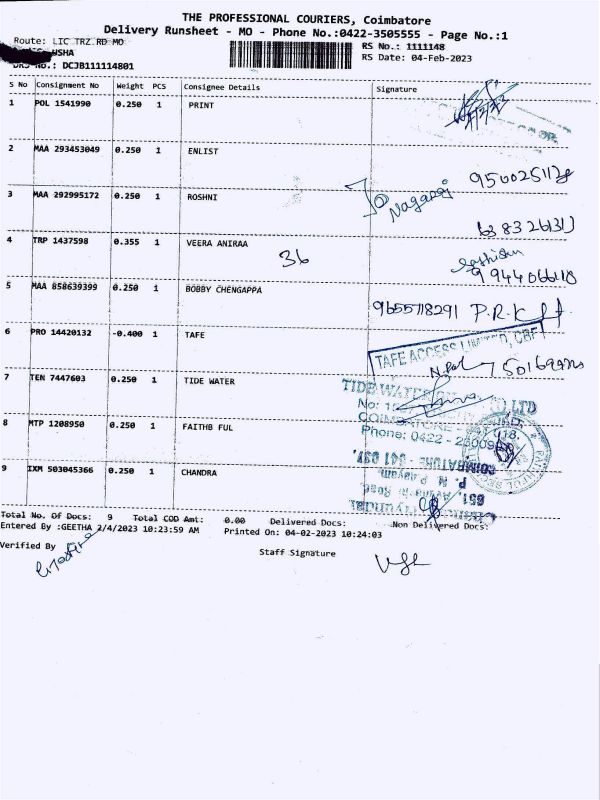 THE PROFESSIONAL COURIERS, Coimbatore
Delivery Runsheet - MO - Phone No.:0422-3505555 - Page No.:1
Route: LIC TRZ RD MO
RS No.: 1111148
USHA
RS Date: 04-Feb-2023
DRS No.: DCJB111114801
S No Consignment No Weight PCS Consignee Details Signature
1 POL 1541990 0.250 1 PRINT
2 MAA 293453049 0.250 1 ENLIST
3 MAA 292995172 0.250 1 ROSHNI
Nagaraj
4 TRP 1437598 0.355 1 VEERA ANIRAA
36
5 MAA 858639399 0.250 1 BOBBY CHENGAPPA
9655718291 P.R.K
6 PRO 14420132 -0.400 1 TAFE
TAFE ACCESS LIMITED, CBE
7 TEN 7447603 0.250 1 TIDE WATER
TIDE WATER LTD
8 MTP 1208950 0.250 1 FAITHB FUL
Phone: 0422 -
COIMBATORE - 641 037.
9 IXM 503045366 0.250 1 CHANDRA
Total No. Of Docs: 9 Total COD Amt: 0.00 Delivered Docs: Non Delivered Docs:
Entered By :GEETHA 2/4/2023 10:23:59 AM Printed On: 04-02-2023 10:24:03
Verified By
Staff Signature